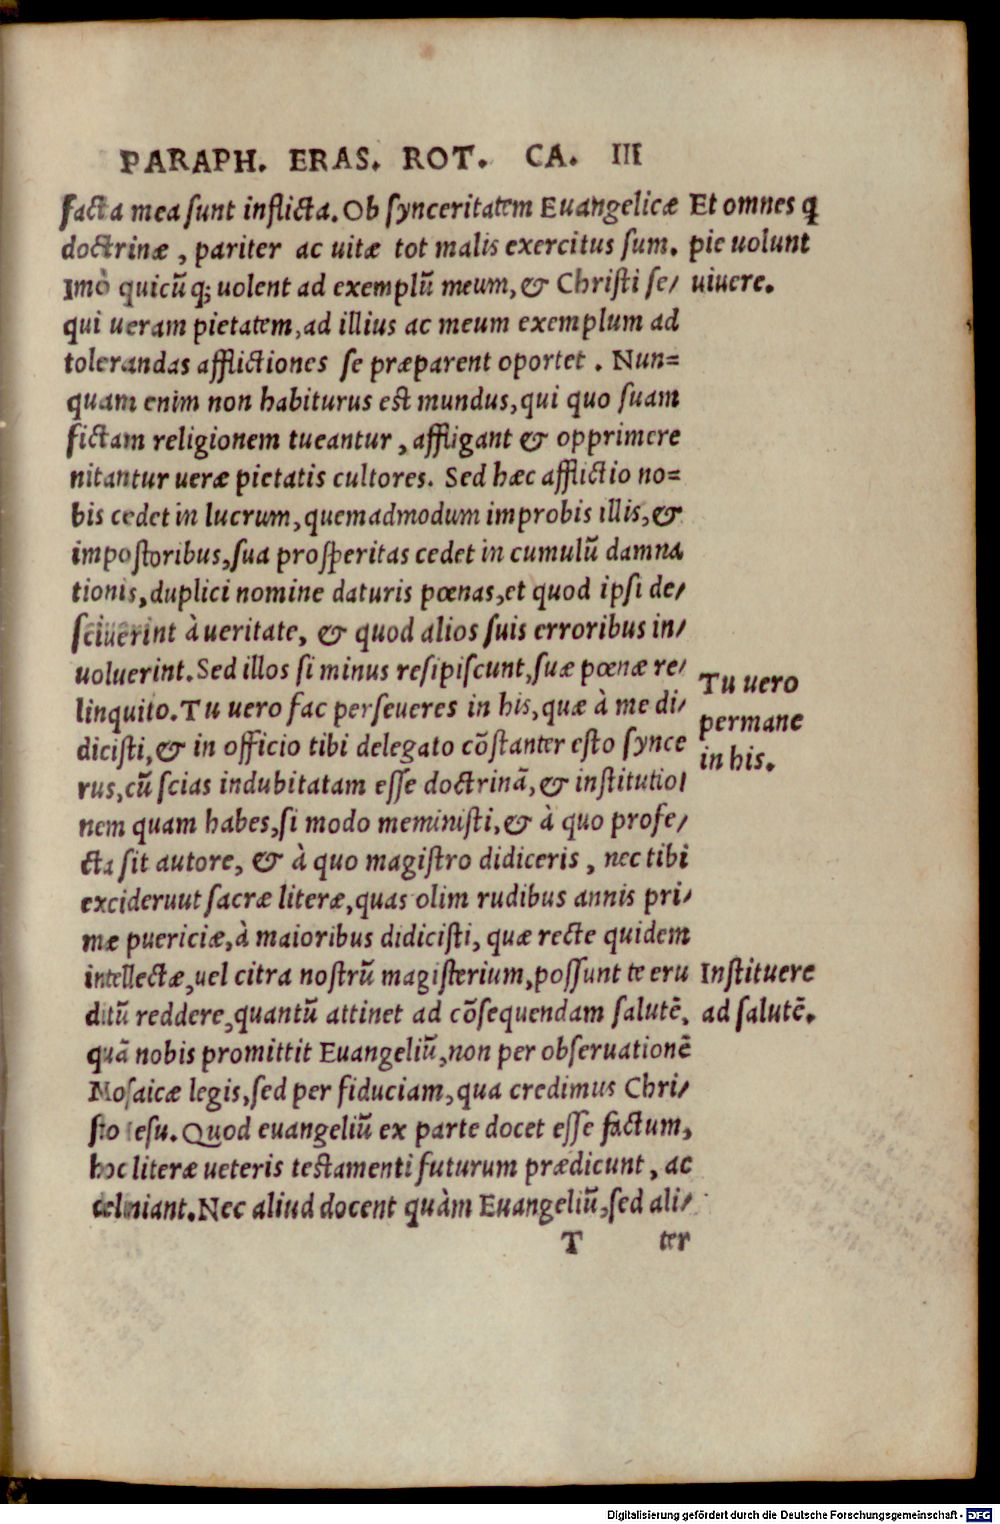 PARAPH. ERAS. ROT. CA. III
facta mea sunt inflicta. Ob synceritatem Euangelicæ
Et omnes q
doctrinæ, pariter ac uitæ tot malis exercitus sum.
pie uolunt
Imò quicũq; uolent ad exemplũ meum, & Christi se/
uiuere.
qui ueram pietatem, ad illius ac meum exemplum ad
tolerandas afflictiones se præparent oportet. Nun=
quam enim non habiturus est mundus, qui quo suam
fictam religionem tueantur, affligant & opprimere
nitantur ueræ pietatis cultores. Sed hæc afflictio no=
bis cedet in lucrum, quemadmodum improbis illis, &
impostoribus, sua prosperitas cedet in cumulũ damna
tionis, duplici nomine daturis pœnas, et quod ipsi de/
sciuerint à ueritate, & quod alios suis erroribus in/
uoluerint. Sed illos si minus resipiscunt, suæ pœnæ re/
linquito. Tu uero fac perseueres in his, quæ à me di/
Tu uero
dicisti, & in officio tibi delegato cõstanter esto synce
permane
rus, cũ scias indubitatam esse doctrinã, & institutio/
in his.
nem quam habes, si modo meministi, & à quo profe/
cta sit autore, & à quo magistro didiceris, nec tibi
excideruut sacræ literæ, quas olim rudibus annis pri/
mæ puericiæ, à maioribus didicisti, quæ recte quidem
intellectæ, uel citra nostrũ magisterium, possunt te eru
Instituere
ditũ reddere, quantũ attinet ad cõsequendam salutẽ,
ad salutẽ.
quã nobis promittit Euangeliũ, non per obseruationẽ
Mosaicæ legis, sed per fiduciam, qua credimus Chri/
sto Iesu. Quod euangeliũ ex parte docet esse factum,
hoc literæ ueteris testamenti futurum prædicunt, ac
deliniant. Nec aliud docent quàm Euangeliũ, sed ali/
T ter
Digitalisierung gefördert durch die Deutsche Forschungsgemeinschaft - DFG